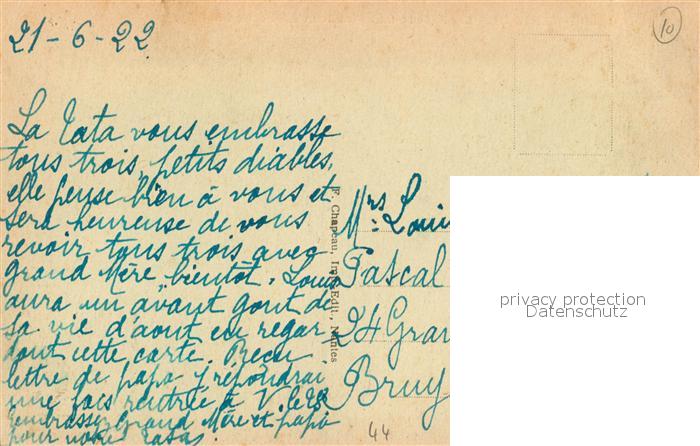 21-6-22
10
La Tata vous embrasse
tous trois, petits diables,
elle pense bien à vous et
sera heureuse de vous
revoir tous trois avec
grand Mère, bientôt. Louis
aura un avant gout de
sa vie d'aout en regar
dant cette carte. Reçu
lettre de papa - J'y répondrai
une fois rentrée à V.
Embrassez Grand Mère et papa
pour votre tata.
F. Chapeau, Imp.-Edit., Nantes
Mrs Loui
Pascal
24 Gran
Bruy
44
privacy protection
Datenschutz